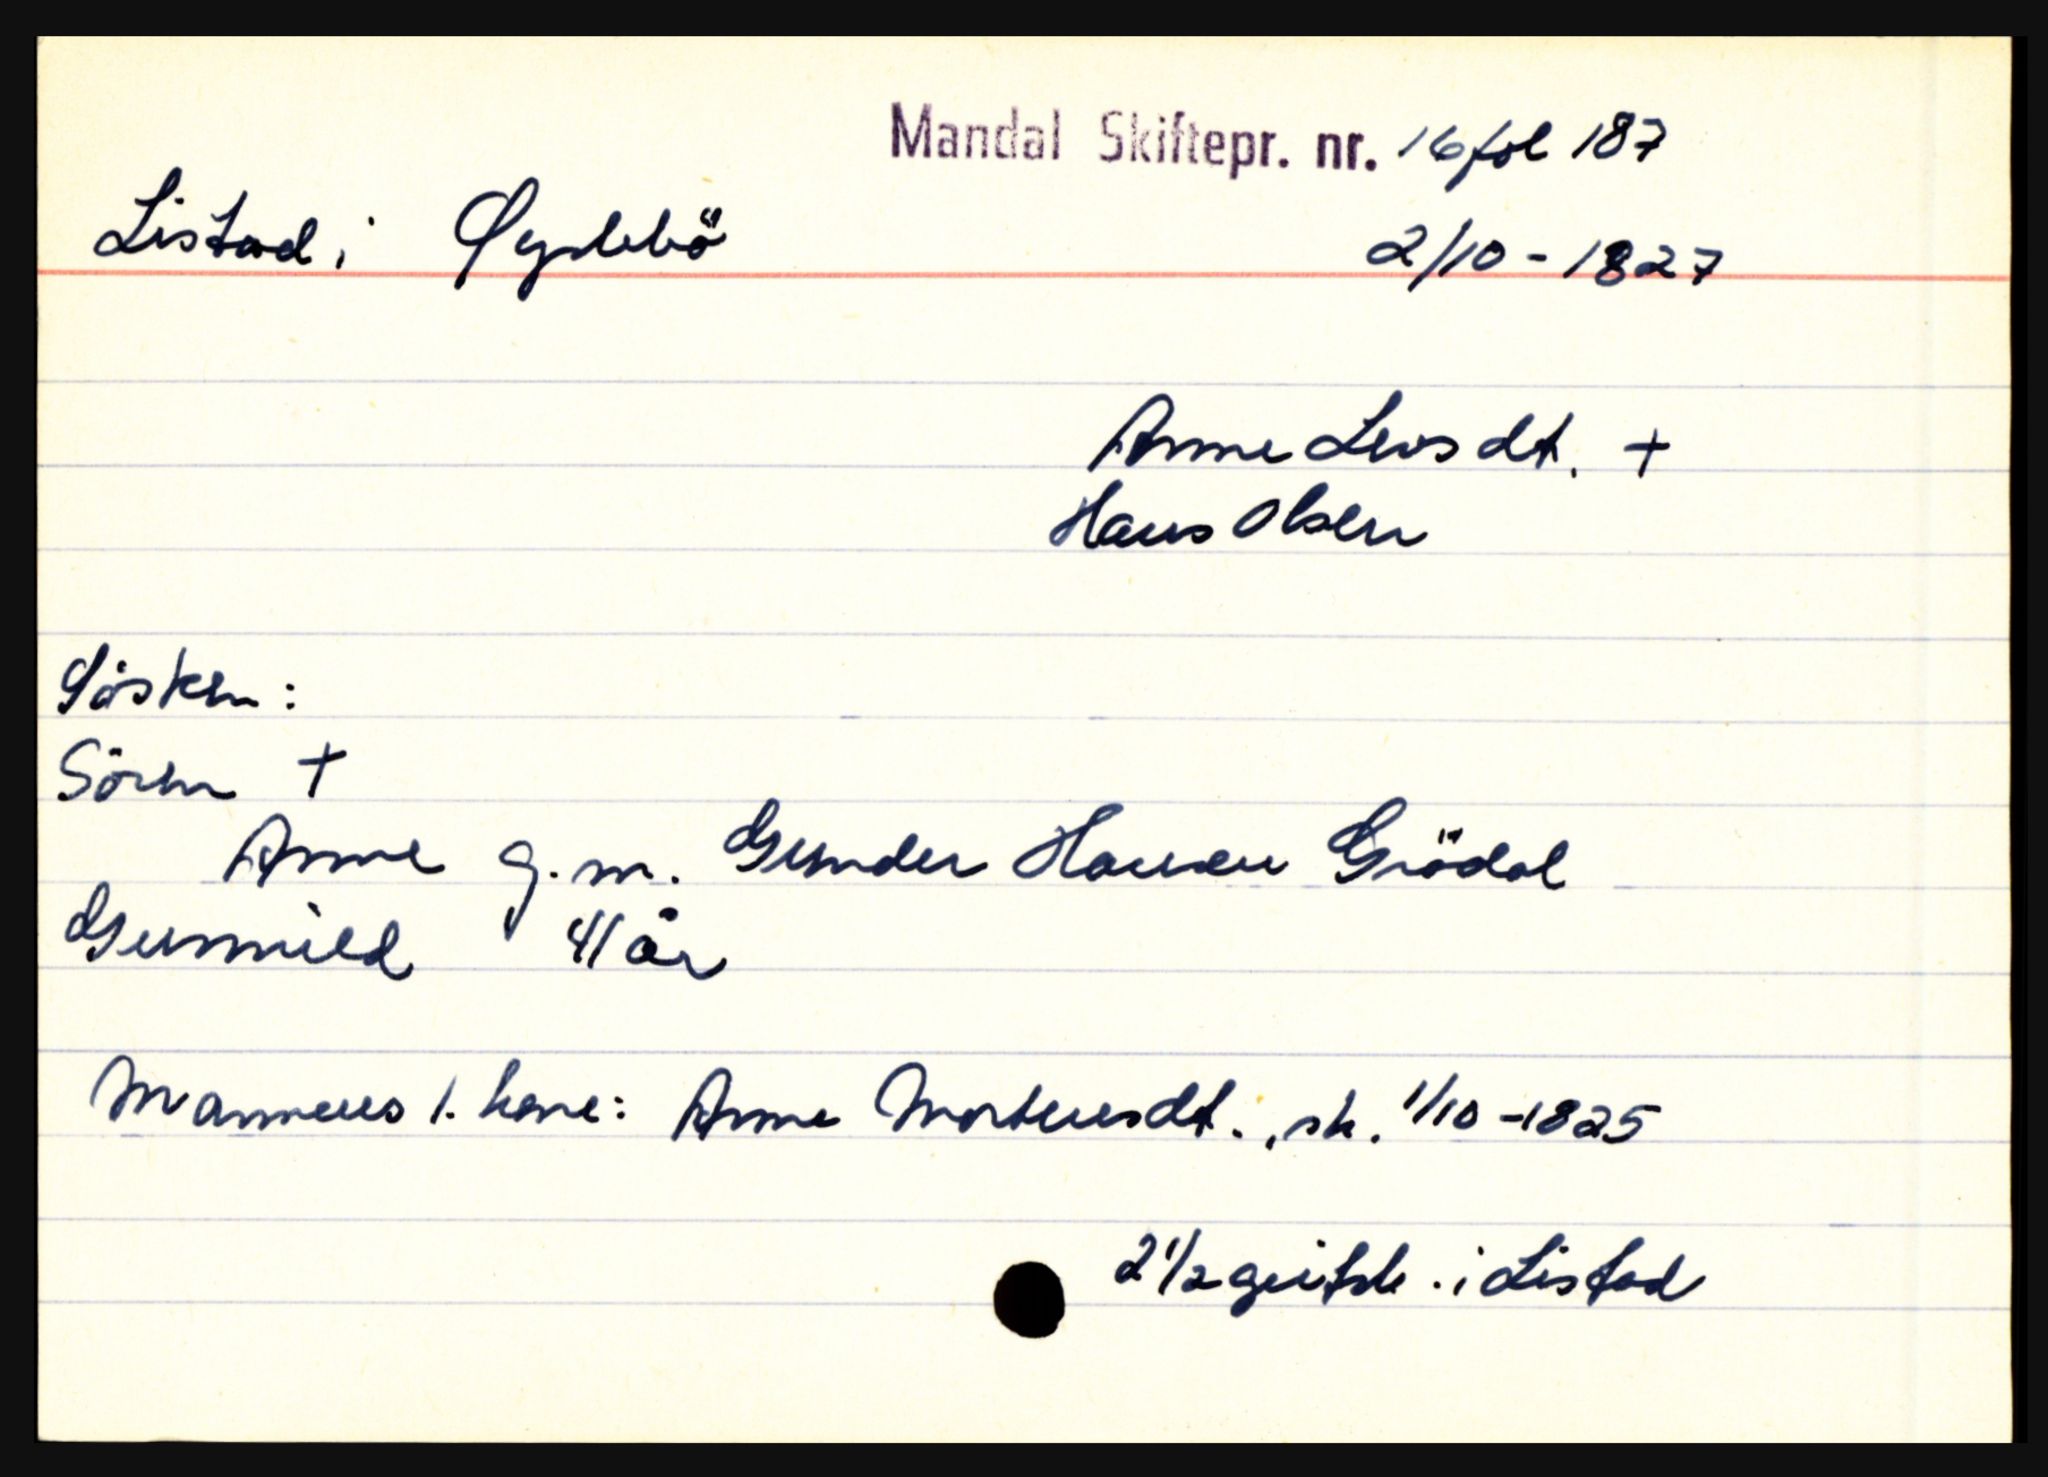 Mandal Skiftepr. nr. 16 fol 187
Listad i Øyslebö 2/10 - 1827
Anne Levsdt. +
Hans Olsen
Sösken:
Sören +
Anne g. m. Gunder Hansen Grödal
Gunnild 41 år
Mannens 1. kone: Anne Mortensdt., sk. 1/10 - 1825
2 1/2 geitsk. i Listad